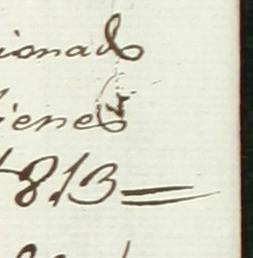 ionado
ienes
1813=